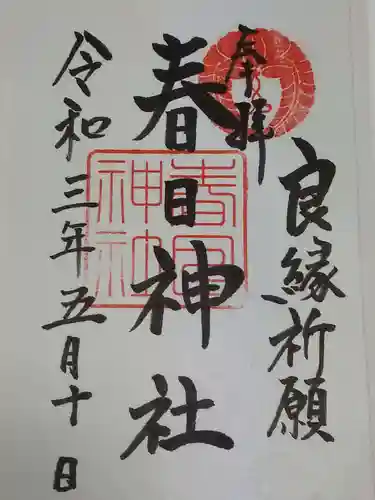 良縁祈願
奉拝
春日神社
春日神社
令和三年五月十日